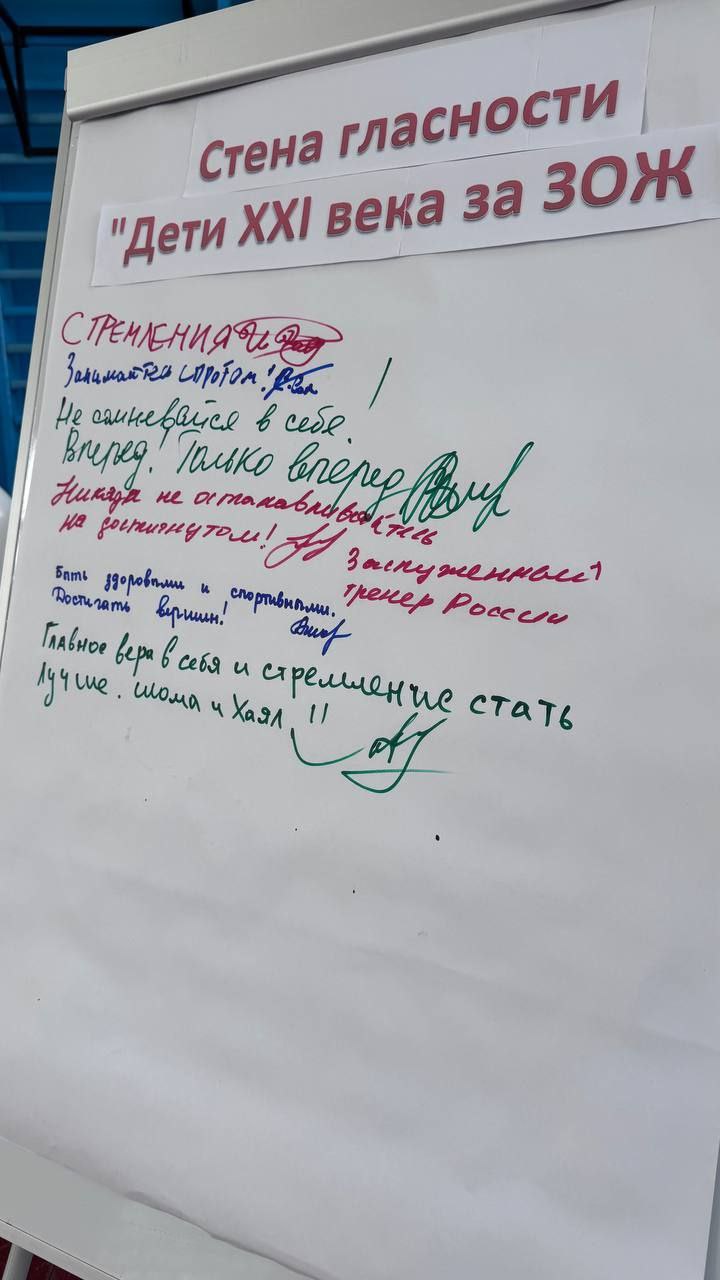 Стена гласности
"Дети XXI века за ЗОЖ
СТРЕМЛЕНИЯ
Занимайтесь спротом!
Не сомневайся в себе!
Вперед! Только вперед
Никогда не останавливайтесь
на достигнутом!
Заслуженный
тренер России
Быть здоровыми и спортивными.
Достигать вершин!
Главное вера в себя и стремление стать
лучше. шома и Хаял !!